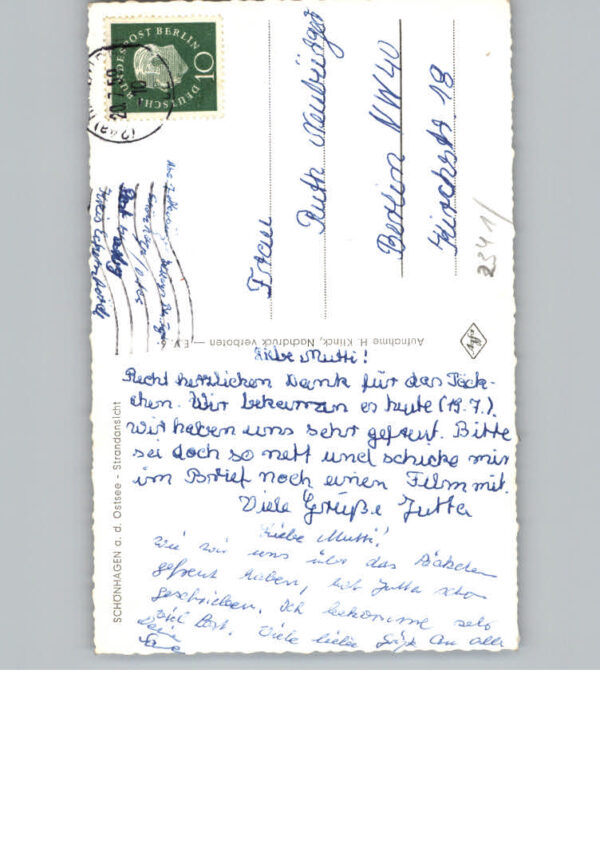 DEUTSCHE BUNDESPOST BERLIN
10
20.7.59
Frau
Ruth Neubürger
Berlin NW 40
Kirchstr. 18
2341/
Aufnahme H. Klinck, Nachdruck verboten — E.V.
SCHÖNHAGEN a. d. Ostsee - Strandansicht
Liebe Mutti!
Recht herzlichen Dank für das Päck-
chen. Wir bekamen es heute (19.7.).
Wir haben uns sehr gefreut. Bitte
sei doch so nett und schicke mir
im Brief noch einen Film mit.
Viele Grüße Jutta
Liebe Mutti!
Wie wir uns über das Päckchen
gefreut haben, hat Jutta schon
geschrieben. Ich bekomme sehr
viel Post. Viele liebe Grüße an alle
Dein